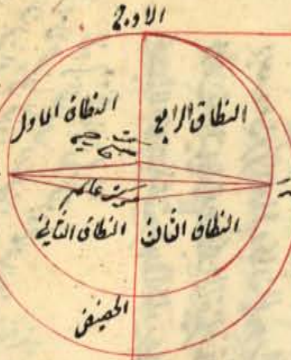 الاوج
النطاق الرابع
النطاق الاول
مركز عالم
النطاق الثالث
النطاق الثاني
الحضيض